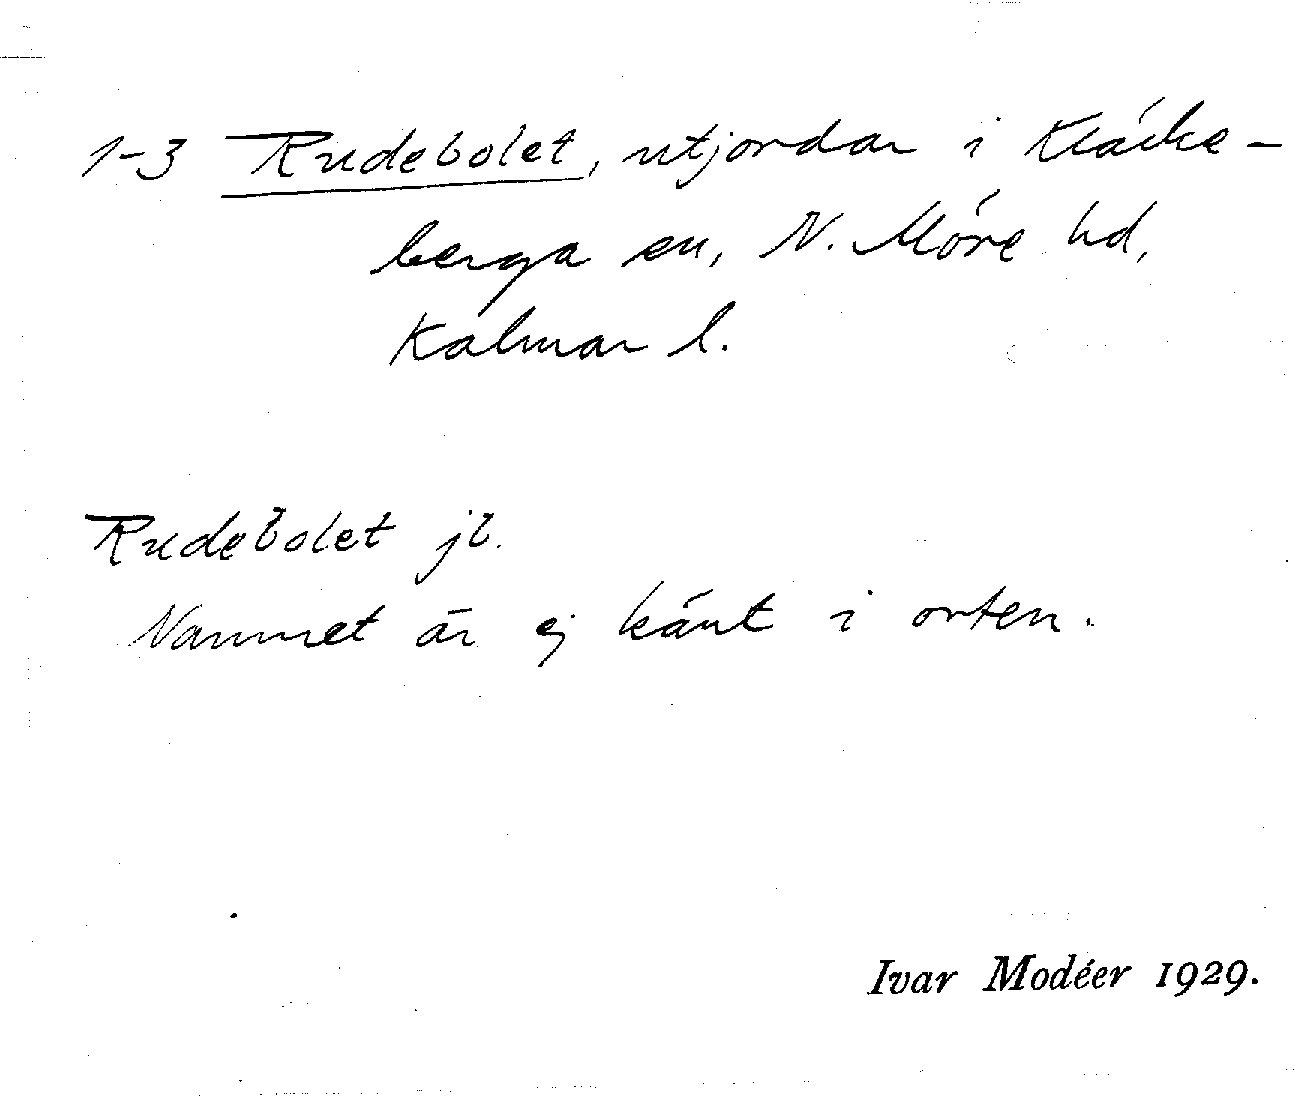 1-3 Rudebolet, utjordar i Kläcke-
berga sn, N. Möre hd,
Kalmar l.
Rudebolet jb.
Namnet är ej känt i orten.
Ivar Modéer 1929.